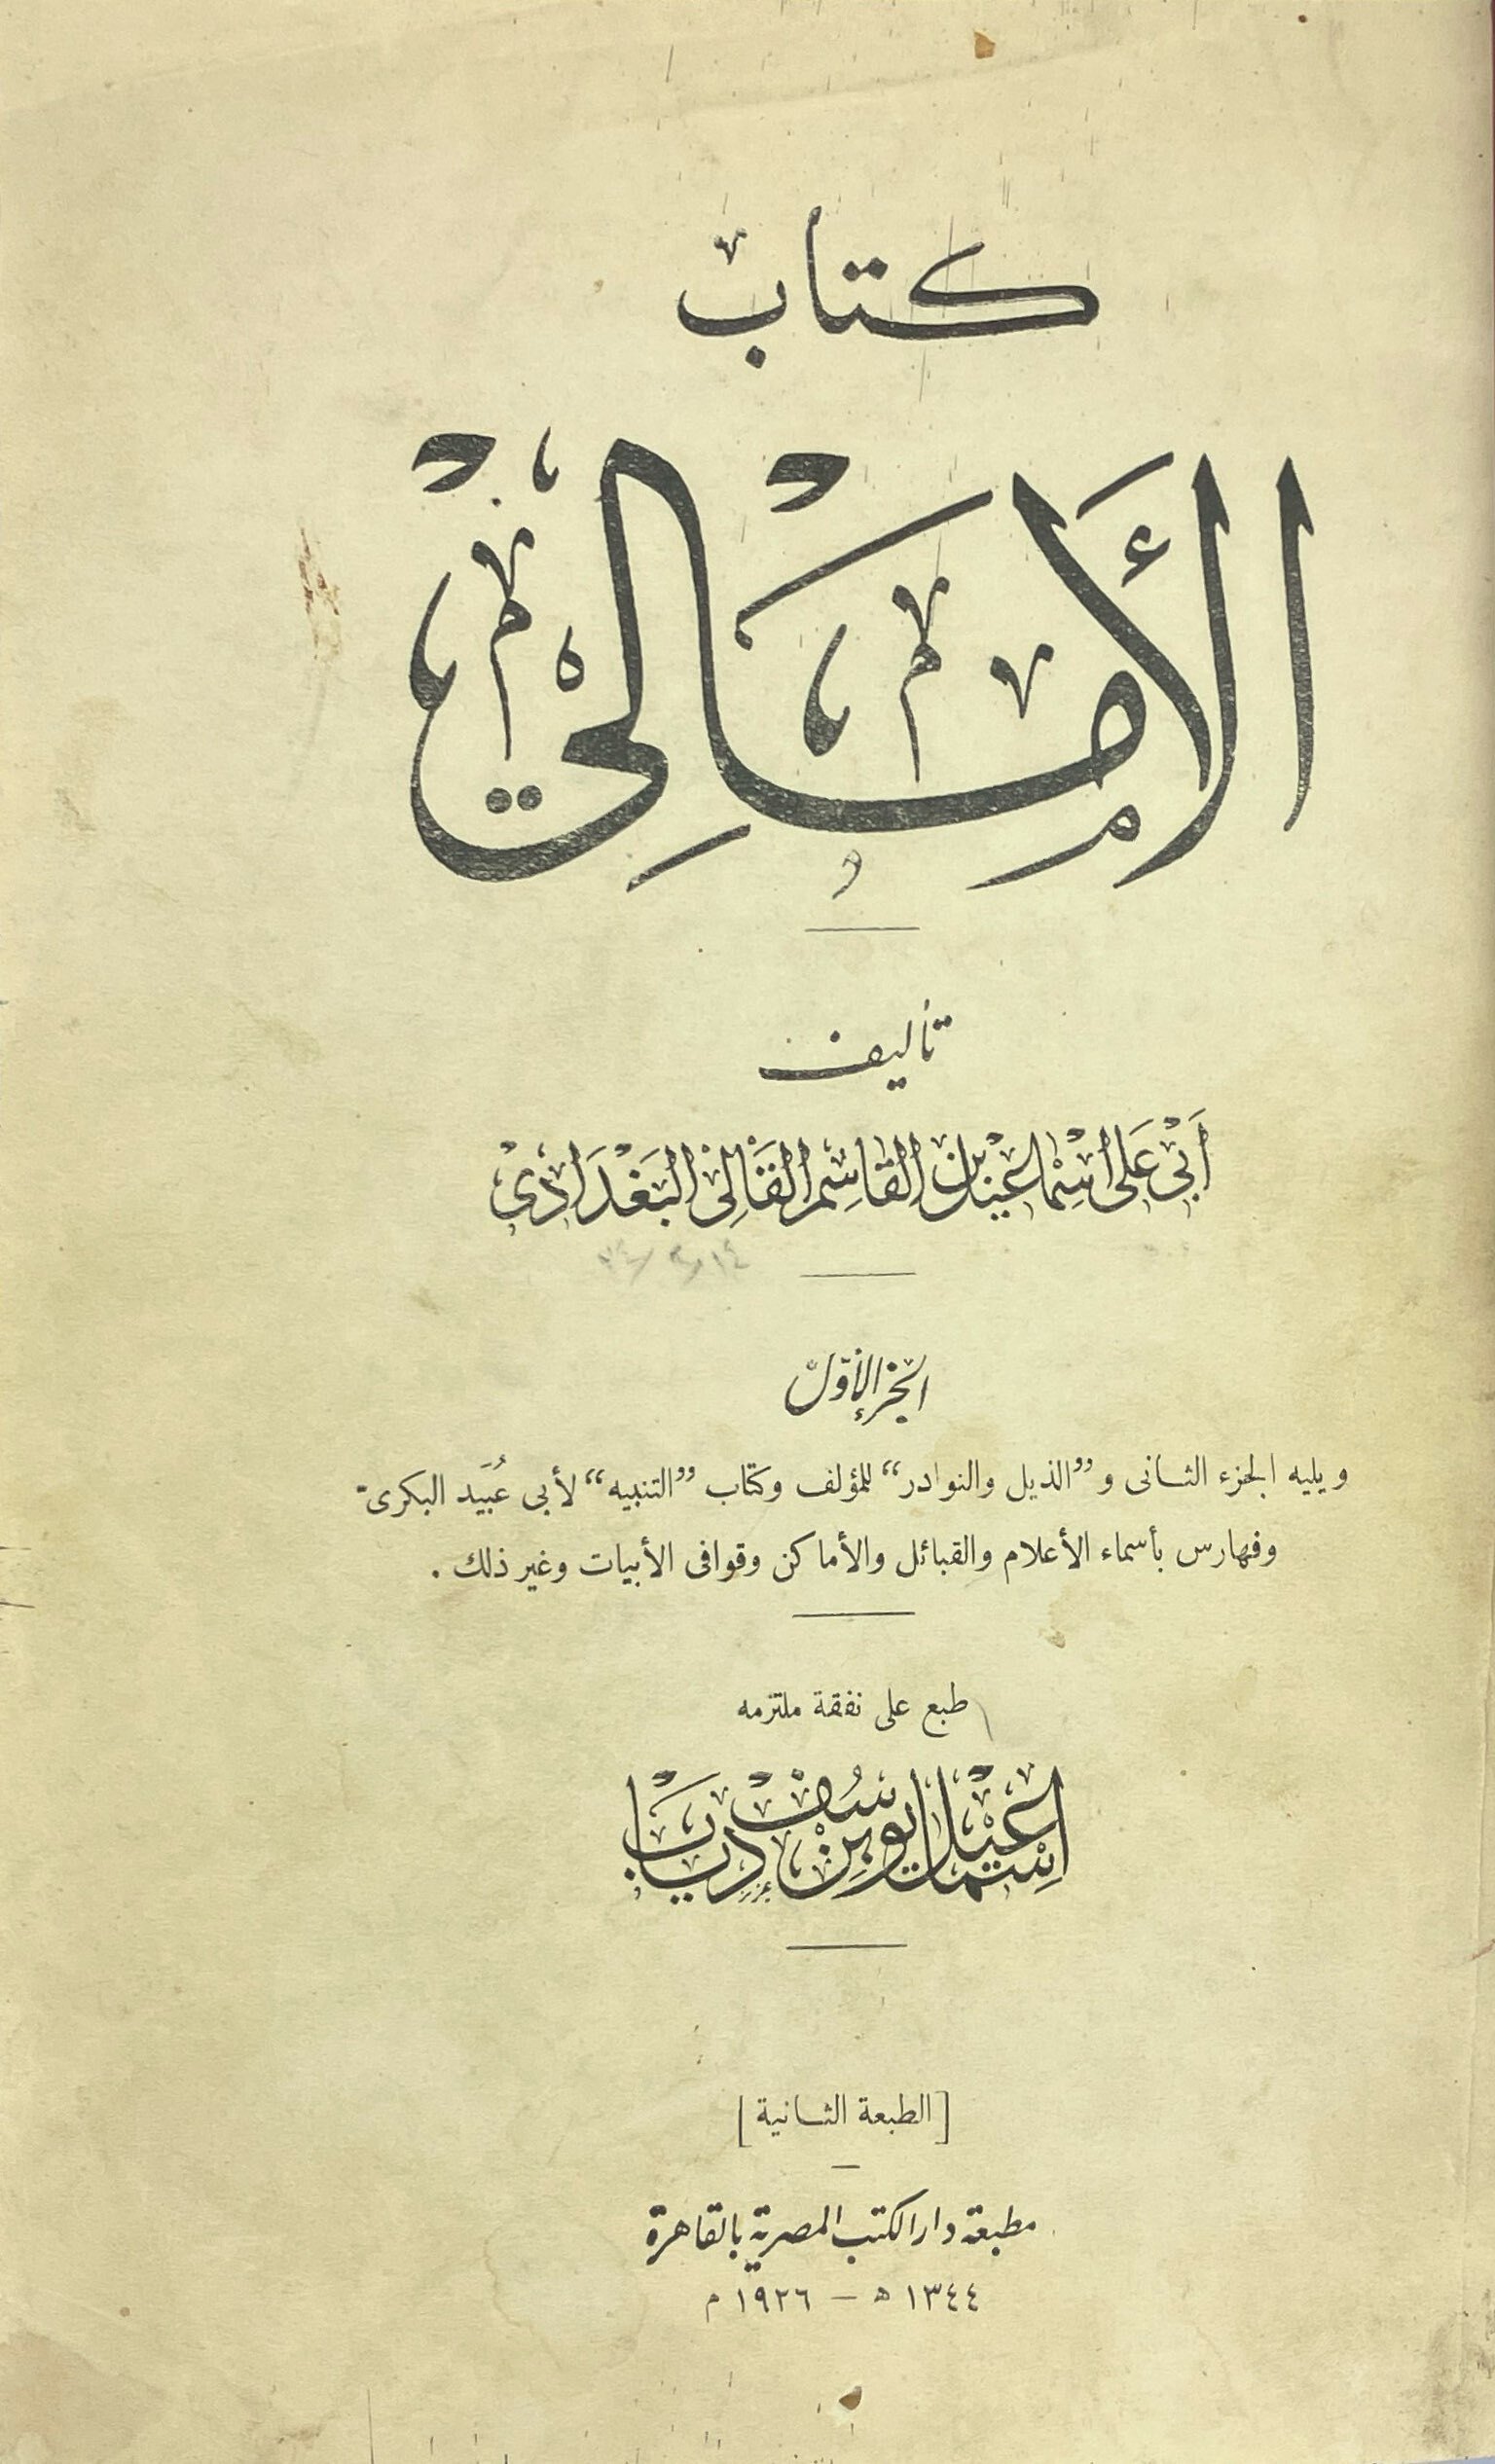 كتاب
الأمالي
تأليف
أبي على إسماعيل بن القاسم القالى البغدادى
الجزء الأول
ويليه الجزء الثانى و "الذيل والنوادر" للمؤلف وكتاب "التنبيه" لأبى عُبَيد البكرىّ
وفهارس بأسماء الأعلام والقبائل والأماكن وقوافى الأبيات وغير ذلك .
طبع على نفقة ملتزمه
إسماعيل يوسف بن دياب
[الطبعة الثانية]
مطبعة دار الكتب المصرية بالقاهرة
١٣٤٤ ه – ١٩٢٦ م